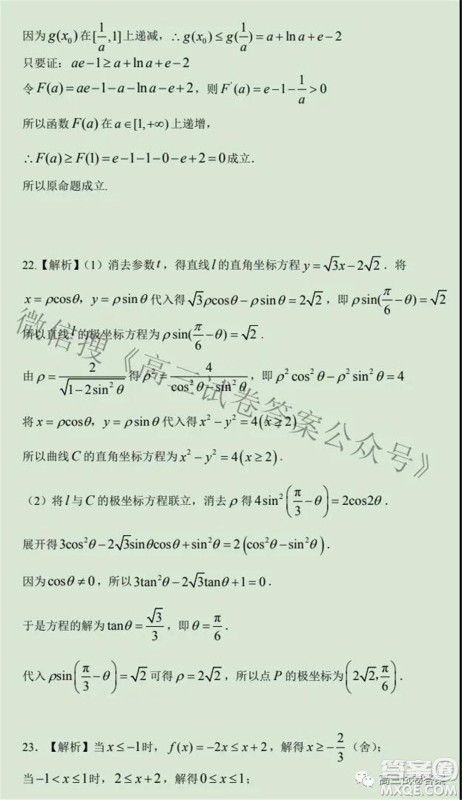 因为 g(x₀) 在 [1/a,1] 上递减，∴ g(x₀) ≤ g(1/a) = a + ln a + e − 2
只要证： ae − 1 ≥ a + ln a + e − 2
令 F(a) = ae − 1 − a − ln a − e + 2，则 F′(a) = e − 1 − 1/a > 0
所以函数 F(a) 在 a ∈ [1,+∞) 上递增，
∴ F(a) ≥ F(1) = e − 1 − 1 − 0 − e + 2 = 0 成立.
所以原命题成立.
22.【解析】（1）消去参数 t，得直线 l 的直角坐标方程 y = √3x − 2√2 . 将
x = ρcosθ，y = ρsinθ 代入得 √3ρcosθ − ρsinθ = 2√2，即 ρsin(π/6 − θ) = √2
所以直线 l 的极坐标方程为 ρsin(π/6 − θ) = √2 .
由 ρ = 2/√(1−2sin²θ) 得 ρ² = 4/(cos²θ − sin²θ)，即 ρ²cos²θ − ρ²sin²θ = 4
将 x = ρcosθ，y = ρsinθ 代入得 x² − y² = 4(x ≥ 2)
所以曲线 C 的直角坐标方程为 x² − y² = 4(x ≥ 2) .
（2）将 l 与 C 的极坐标方程联立，消去 ρ 得 4sin²(π/3 − θ) = 2cos2θ .
展开得 3cos²θ − 2√3sinθcosθ + sin²θ = 2(cos²θ − sin²θ) .
因为 cosθ ≠ 0，所以 3tan²θ − 2√3tanθ + 1 = 0 .
于是方程的解为 tanθ = √3/3，即 θ = π/6 .
代入 ρsin(π/3 − θ) = √2 可得 ρ = 2√2，所以点 P 的极坐标为 (2√2, π/6) .
23．【解析】当 x ≤ −1 时， f(x) = −2x ≤ x + 2，解得 x ≥ −2/3（舍）；
当 −1 < x ≤ 1 时，2 ≤ x + 2，解得 0 ≤ x ≤ 1；
微信搜《高三试卷答案公众号》
高三试卷答案
答案圈
MXQE.COM